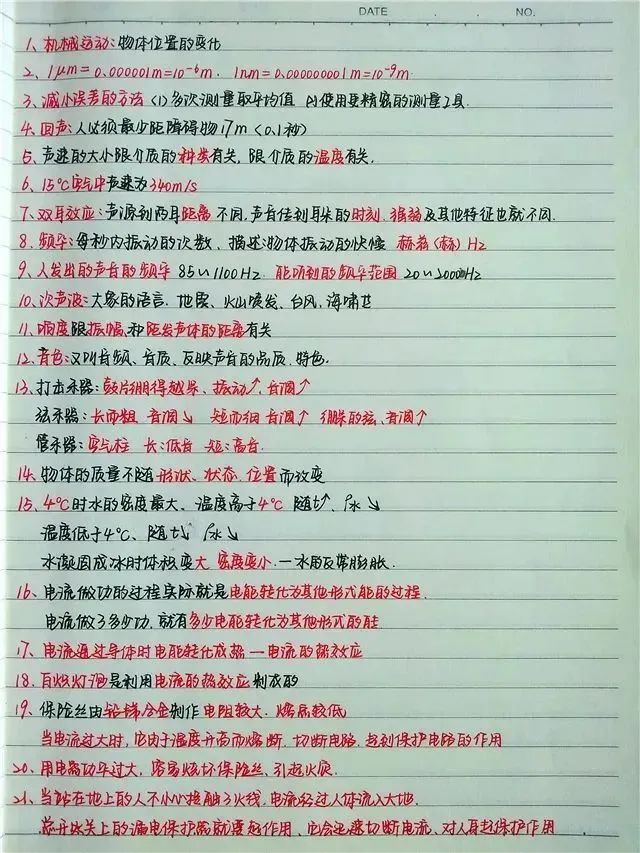 DATE NO.
1、机械运动：物体位置的变化
2、1μm=0.000001m=10⁻⁶m. 1nm=0.000000001m=10⁻⁹m.
3、减小误差的方法 (1)多次测量取平均值 (2)使用更精密的测量工具.
4、回声：人必须最少距障碍物17m (0.1秒)
5、声速的大小跟介质的种类有关，跟介质的温度有关.
6、15℃空气中声速为340m/s
7、双耳效应：声源到两耳距离不同，声音传到耳朵的时刻、强弱及其他特征也就不同.
8、频率：每秒内振动的次数、描述物体振动的快慢 赫兹(赫) Hz
9、人发出的声音的频率 85~1100Hz. 能听到的频率范围 20~20000Hz
10、次声波：大象的语言、地震、火山喷发、台风、海啸等
11、响度跟振幅、和距发声体的距离有关
12、音色：又叫音频、音质、反映声音的品质、特色.
13、打击乐器：鼓片绷得越紧、振动↑、音调↑
弦乐器：长而粗 音调↓ 短而细 音调↑ 绷紧的弦、音调↑
管乐器：空气柱 长：低音 短：高音.
14、物体的质量不随形状、状态、位置而改变
15、4℃时水的密度最大、温度高于4℃ 随t↑、ρ水↓
温度低于4℃、随t↓ ρ水↓
水凝固成冰时体积变大 密度变小.—水的反常膨胀.
16、电流做功的过程实际就是电能转化为其他形式能的过程.
电流做了多少功，就有多少电能转化为其他形式的能
17、电流通过导体时电能转化成热—电流的热效应
18、白炽灯泡是利用电流的热效应制成的
19、保险丝由铅锑合金制作 电阻较大、熔点较低
当电流过大时，它由于温度升高而熔断、切断电路、起到保护电路的作用
20、用电器功率过大，容易烧坏保险丝、引起火灾.
21、当站在地上的人不小心接触了火线，电流经过人体流入大地.
总开关上的漏电保护器就要起作用、它会迅速切断电流、对人身起保护作用